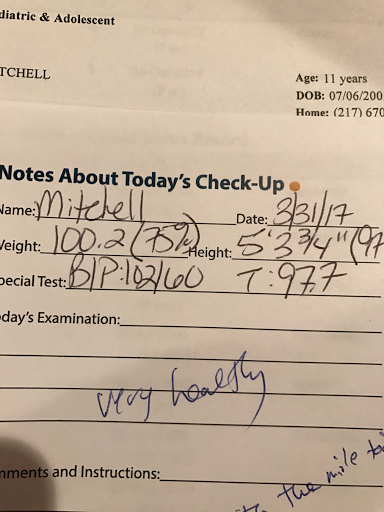 diatric & Adolescent
TCHELL
Age: 11 years
DOB: 07/06/200
Home: (217) 670
Notes About Today's Check-Up
Name: Mitchell Date: 3/31/17
Weight: 100.2 (75%) Height: 5'3 3/4" (97
pecial Test: B/P: 102/60 T: 97.7
day's Examination:
very healthy
mments and Instructions:
the mile